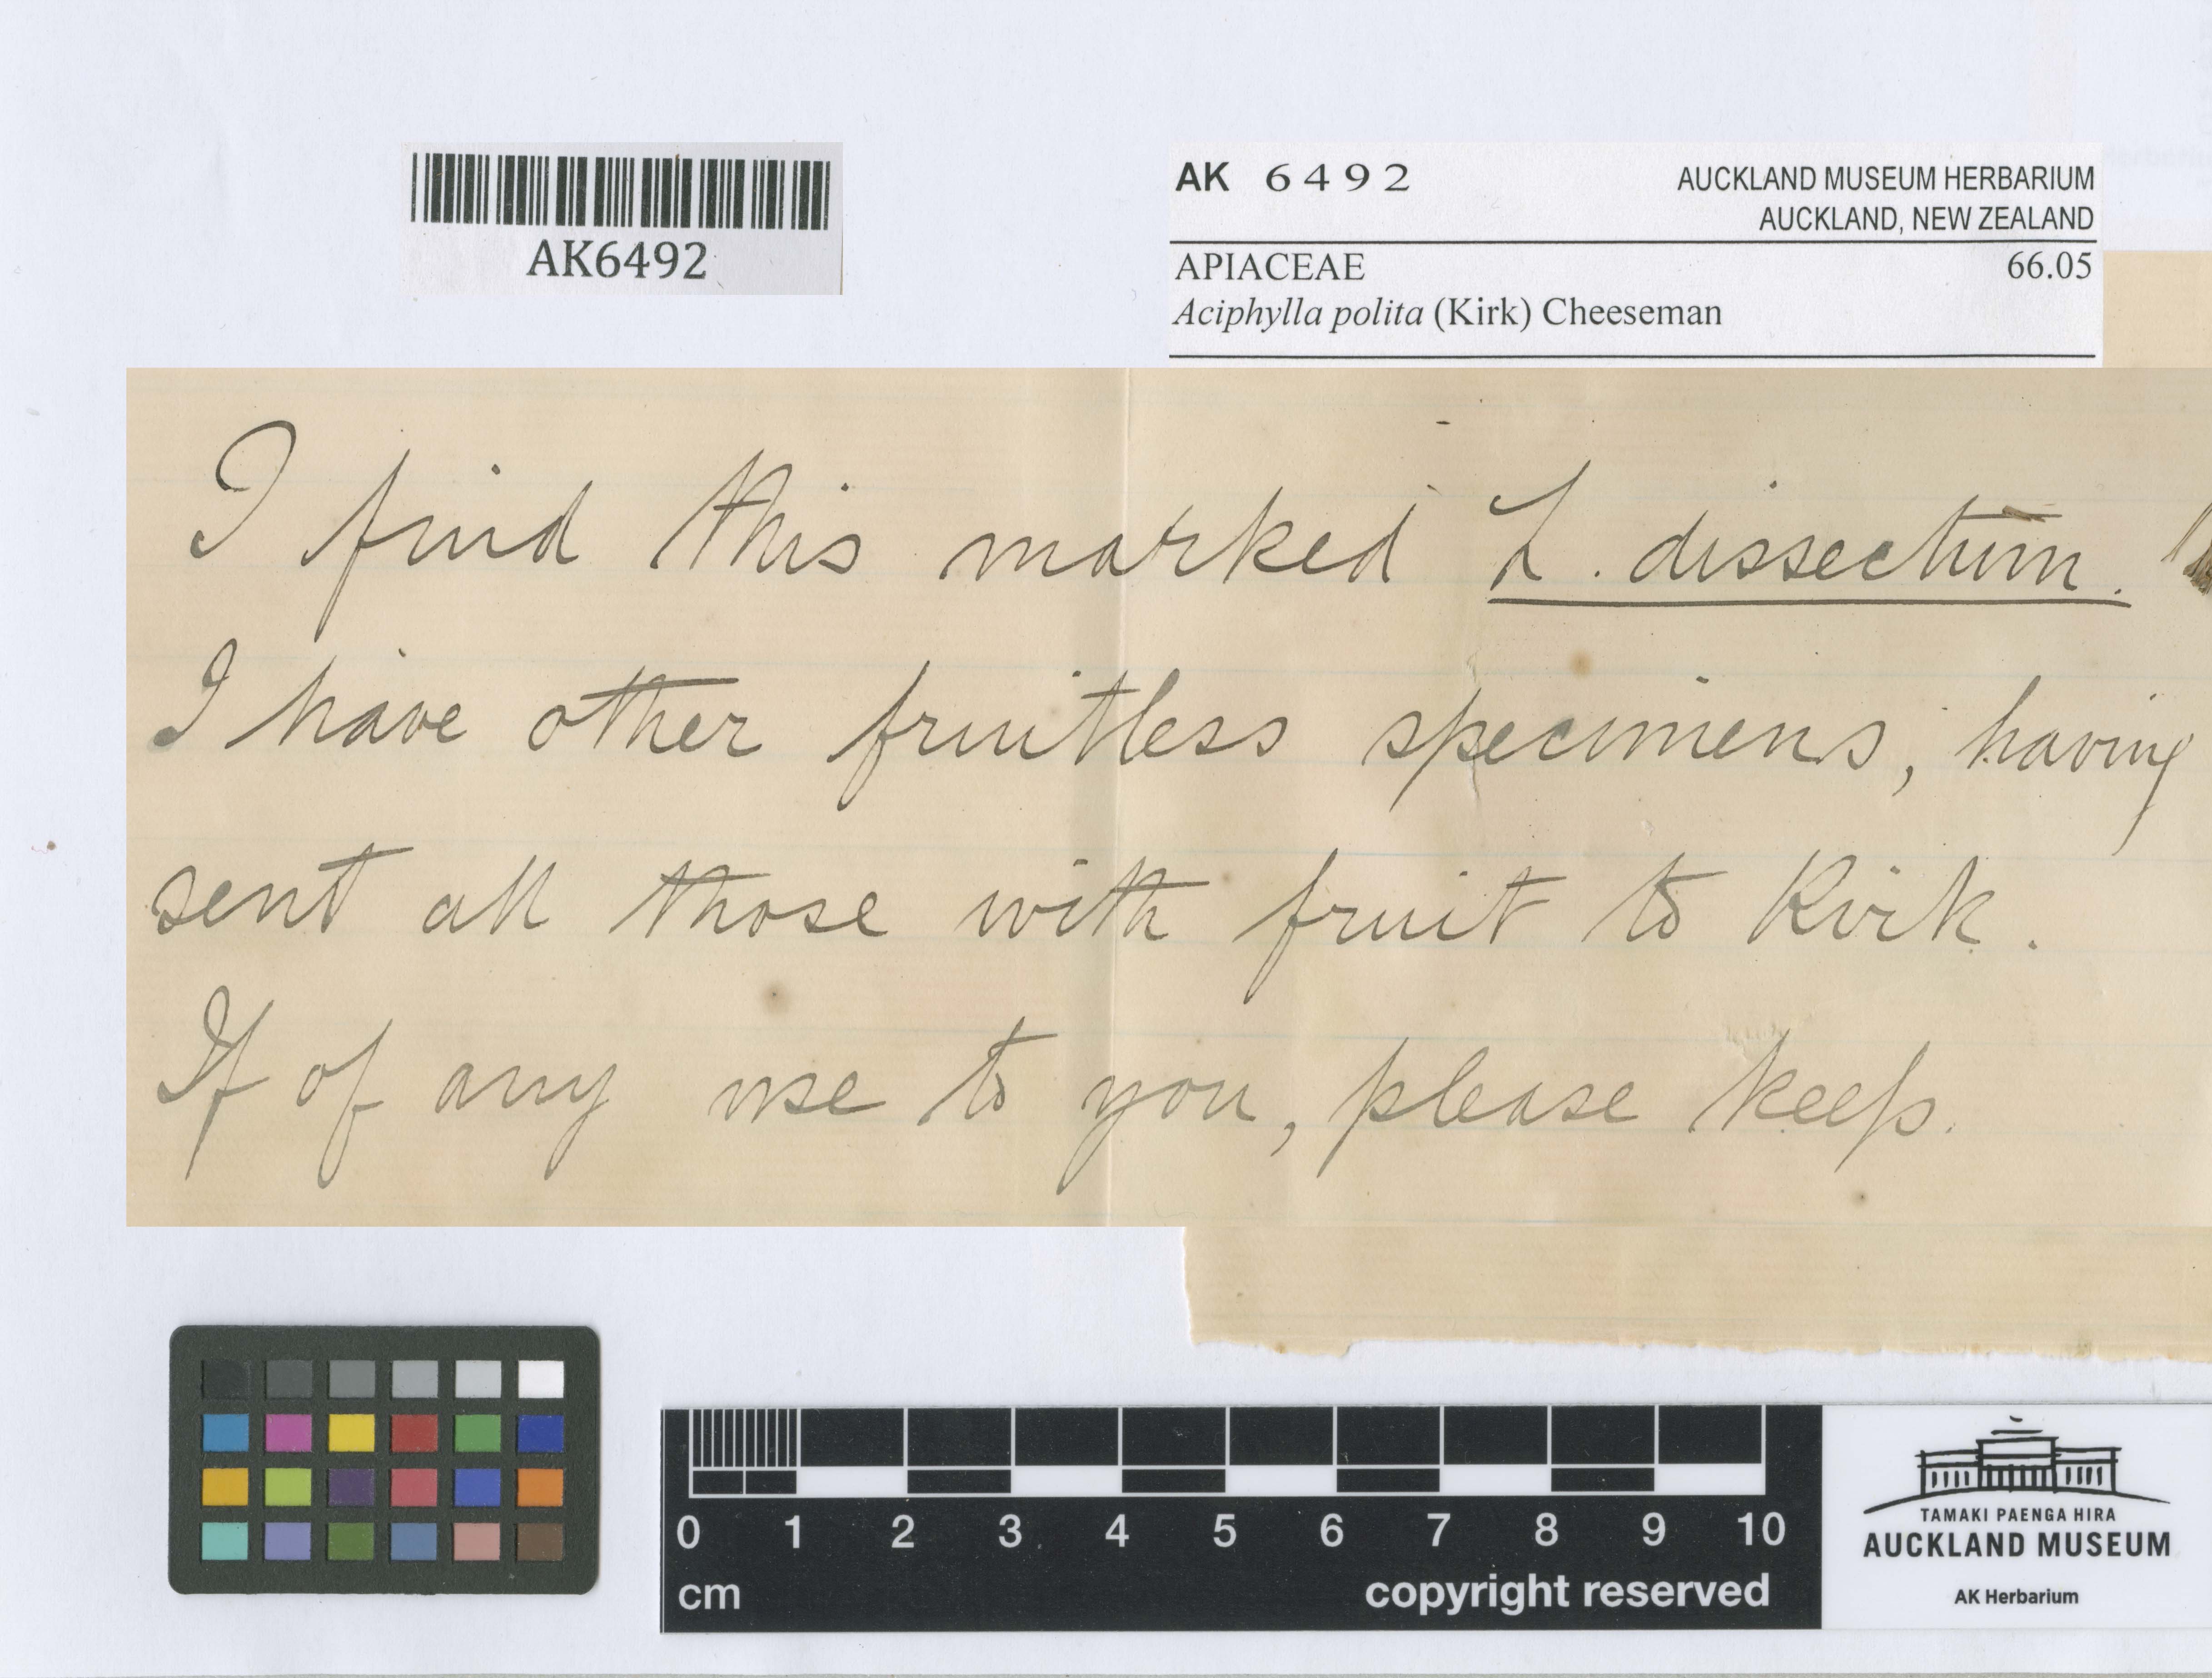 AK6492
AK 6492
AUCKLAND MUSEUM HERBARIUM
AUCKLAND, NEW ZEALAND
APIACEAE 66.05
Aciphylla polita (Kirk) Cheeseman
I find this marked L. dissectum.
I have other fruitless specimens, having
sent all those with fruit to Kirk.
If of any use to you, please keep.
0 1 2 3 4 5 6 7 8 9 10
cm copyright reserved
TAMAKI PAENGA HIRA
AUCKLAND MUSEUM
AK Herbarium